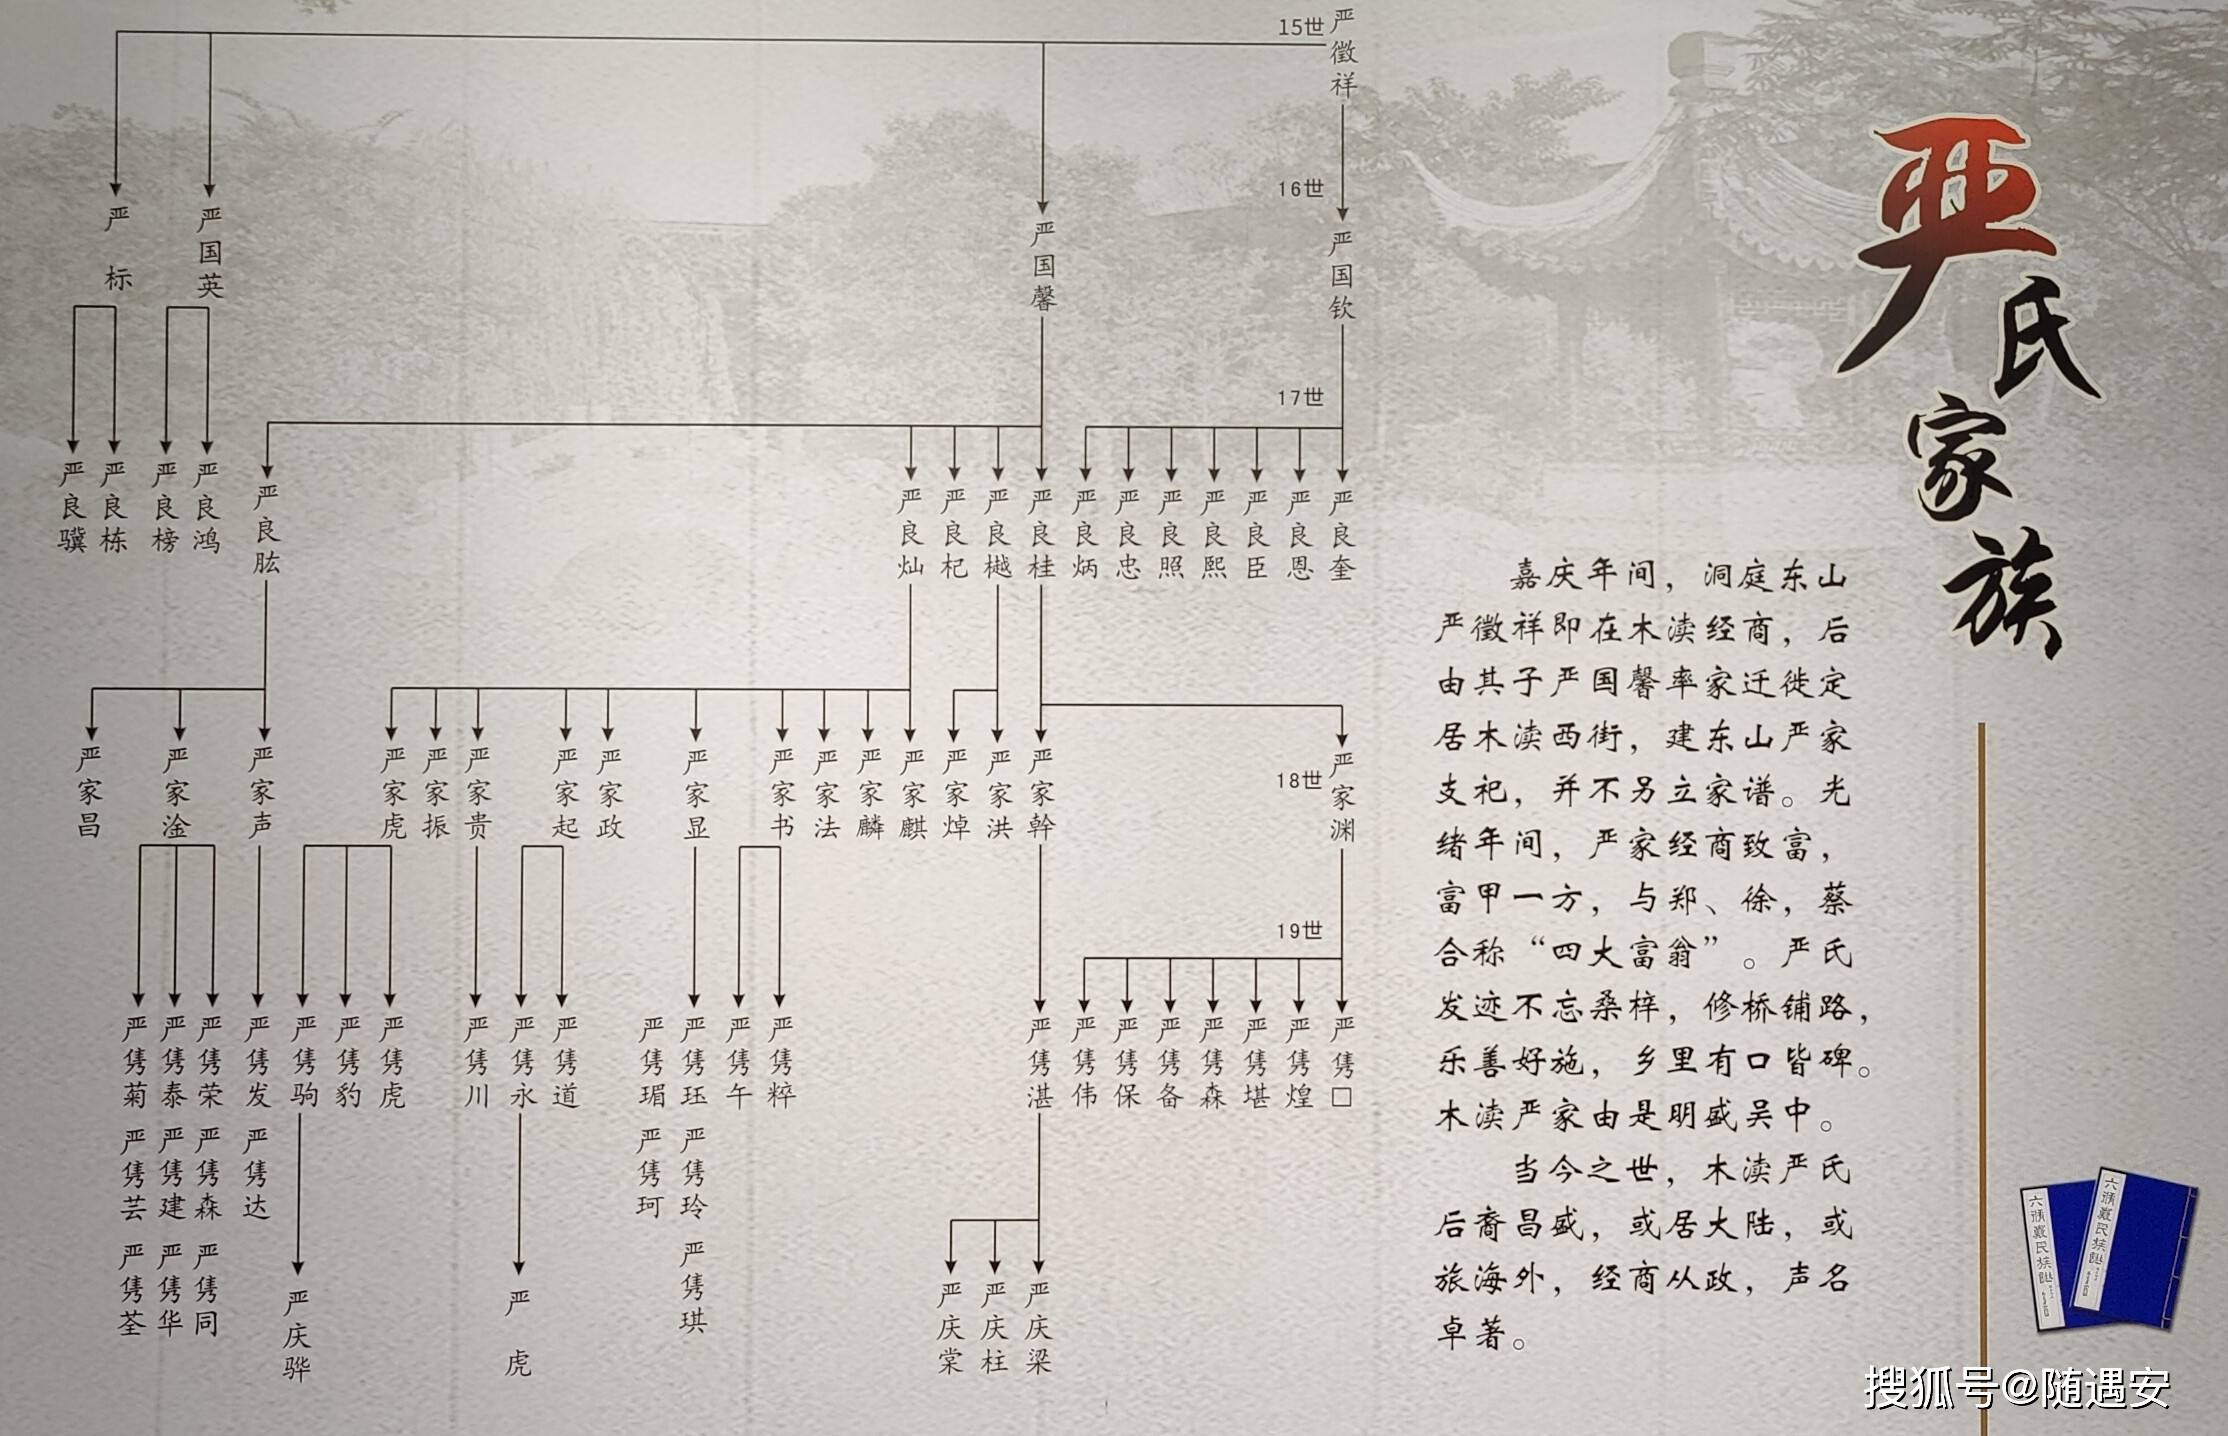 严氏家族
嘉庆年间，洞庭东山
严徵祥即在木渎经商，后
由其子严国馨率家迁徙定
居木渎西街，建东山严家
支祀，并不另立家谱。光
绪年间，严家经商致富，
富甲一方，与郑、徐，蔡
合称“四大富翁”。严氏
发迹不忘桑梓，修桥铺路，
乐善好施，乡里有口皆碑。
木渎严家由是明盛吴中。
当今之世，木渎严氏
后裔昌盛，或居大陆，或
旅海外，经商从政，声名
卓著。
15世
严徵祥
16世
严国钦
严国馨
严国英
严标
17世
严良奎
严良恩
严良臣
严良熙
严良照
严良忠
严良炳
严良桂
严良樾
严良杞
严良灿
严良肱
严良鸿
严良榜
严良栋
严良骥
18世
严家渊
严家幹
严家洪
严家焯
严家麒
严家麟
严家法
严家书
严家显
严家政
严家起
严家贵
严家振
严家虎
严家声
严家淦
严家昌
19世
严隽口
严隽煌
严隽堪
严隽森
严隽备
严隽保
严隽伟
严隽湛
严隽粹
严隽午
严隽珏
严隽玲
严隽琪
严隽瑂
严隽珂
严隽道
严隽永
严隽川
严隽虎
严隽豹
严隽驹
严隽发
严隽达
严隽荣
严隽森
严隽同
严隽泰
严隽建
严隽华
严隽菊
严隽芸
严隽荃
严庆梁
严庆柱
严庆棠
严虎
严庆骅
搜狐号@随遇安